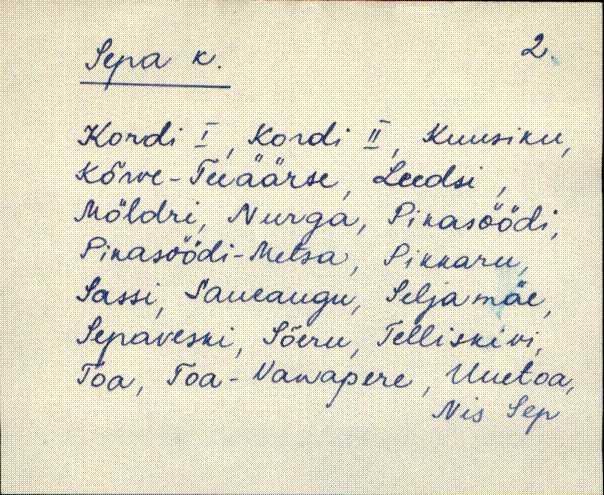 Sepa k. 2.
Kordi I, Kordi II, Kuusiku,
Kõrve-Teeäärse, Leedsi,
Möldri, Nurga, Pikasöödi,
Pikasöödi-Metsa, Pikkaru,
Sassi, Saueaugu, Seljamäe,
Sepaveski, Sõeru, Telliskivi,
Toa, Toa-Vanapere, Uuetoa,
Nis Sep